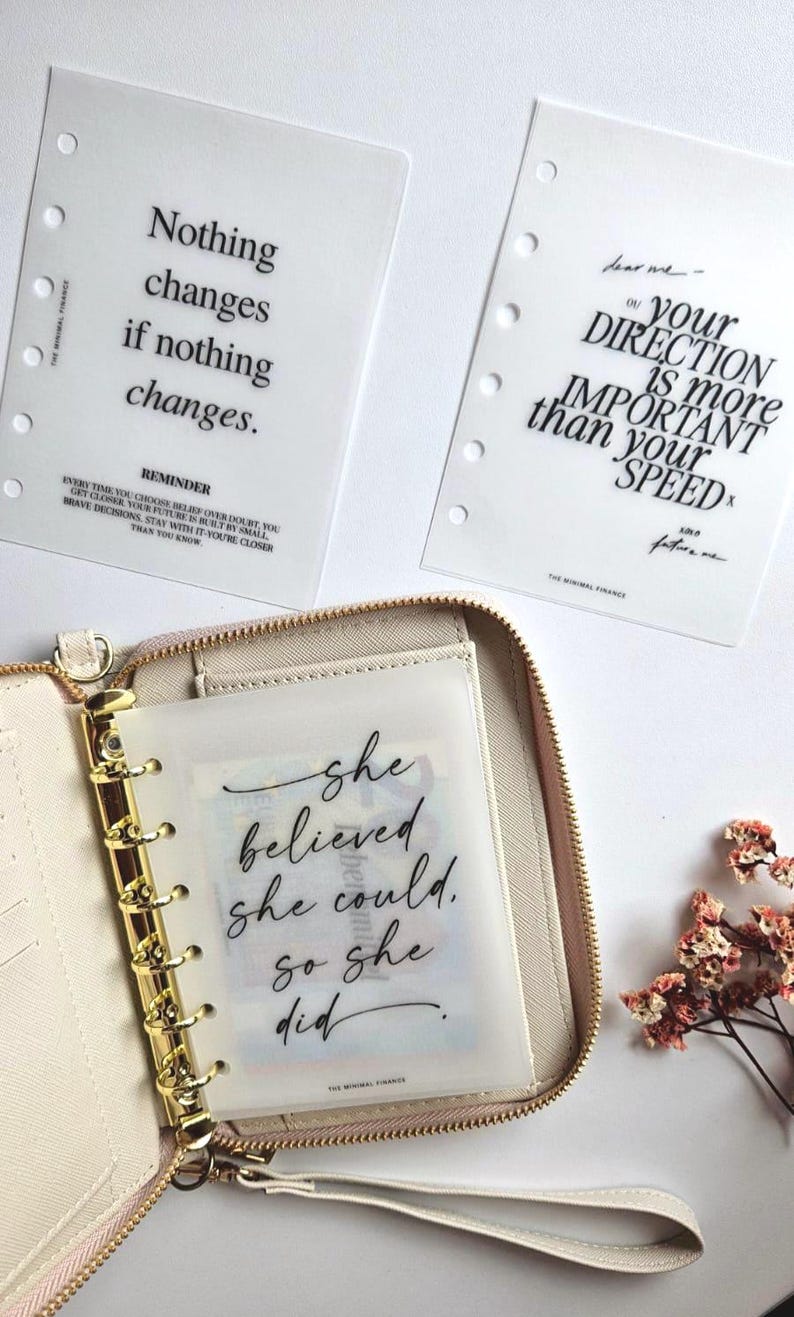 Nothing
changes
if nothing
changes.
THE MINIMAL FINANCE
REMINDER
EVERY TIME YOU CHOOSE BELIEF OVER DOUBT, YOU
GET CLOSER. YOUR FUTURE IS BUILT BY SMALL,
BRAVE DECISIONS. STAY WITH IT-YOU'RE CLOSER
THAN YOU KNOW.
dear me -
01/ your
DIRECTION
is more
IMPORTANT
than your
SPEED x
xoxo
future me
THE MINIMAL FINANCE
she
believed
she could,
so she
did.
THE MINIMAL FINANCE